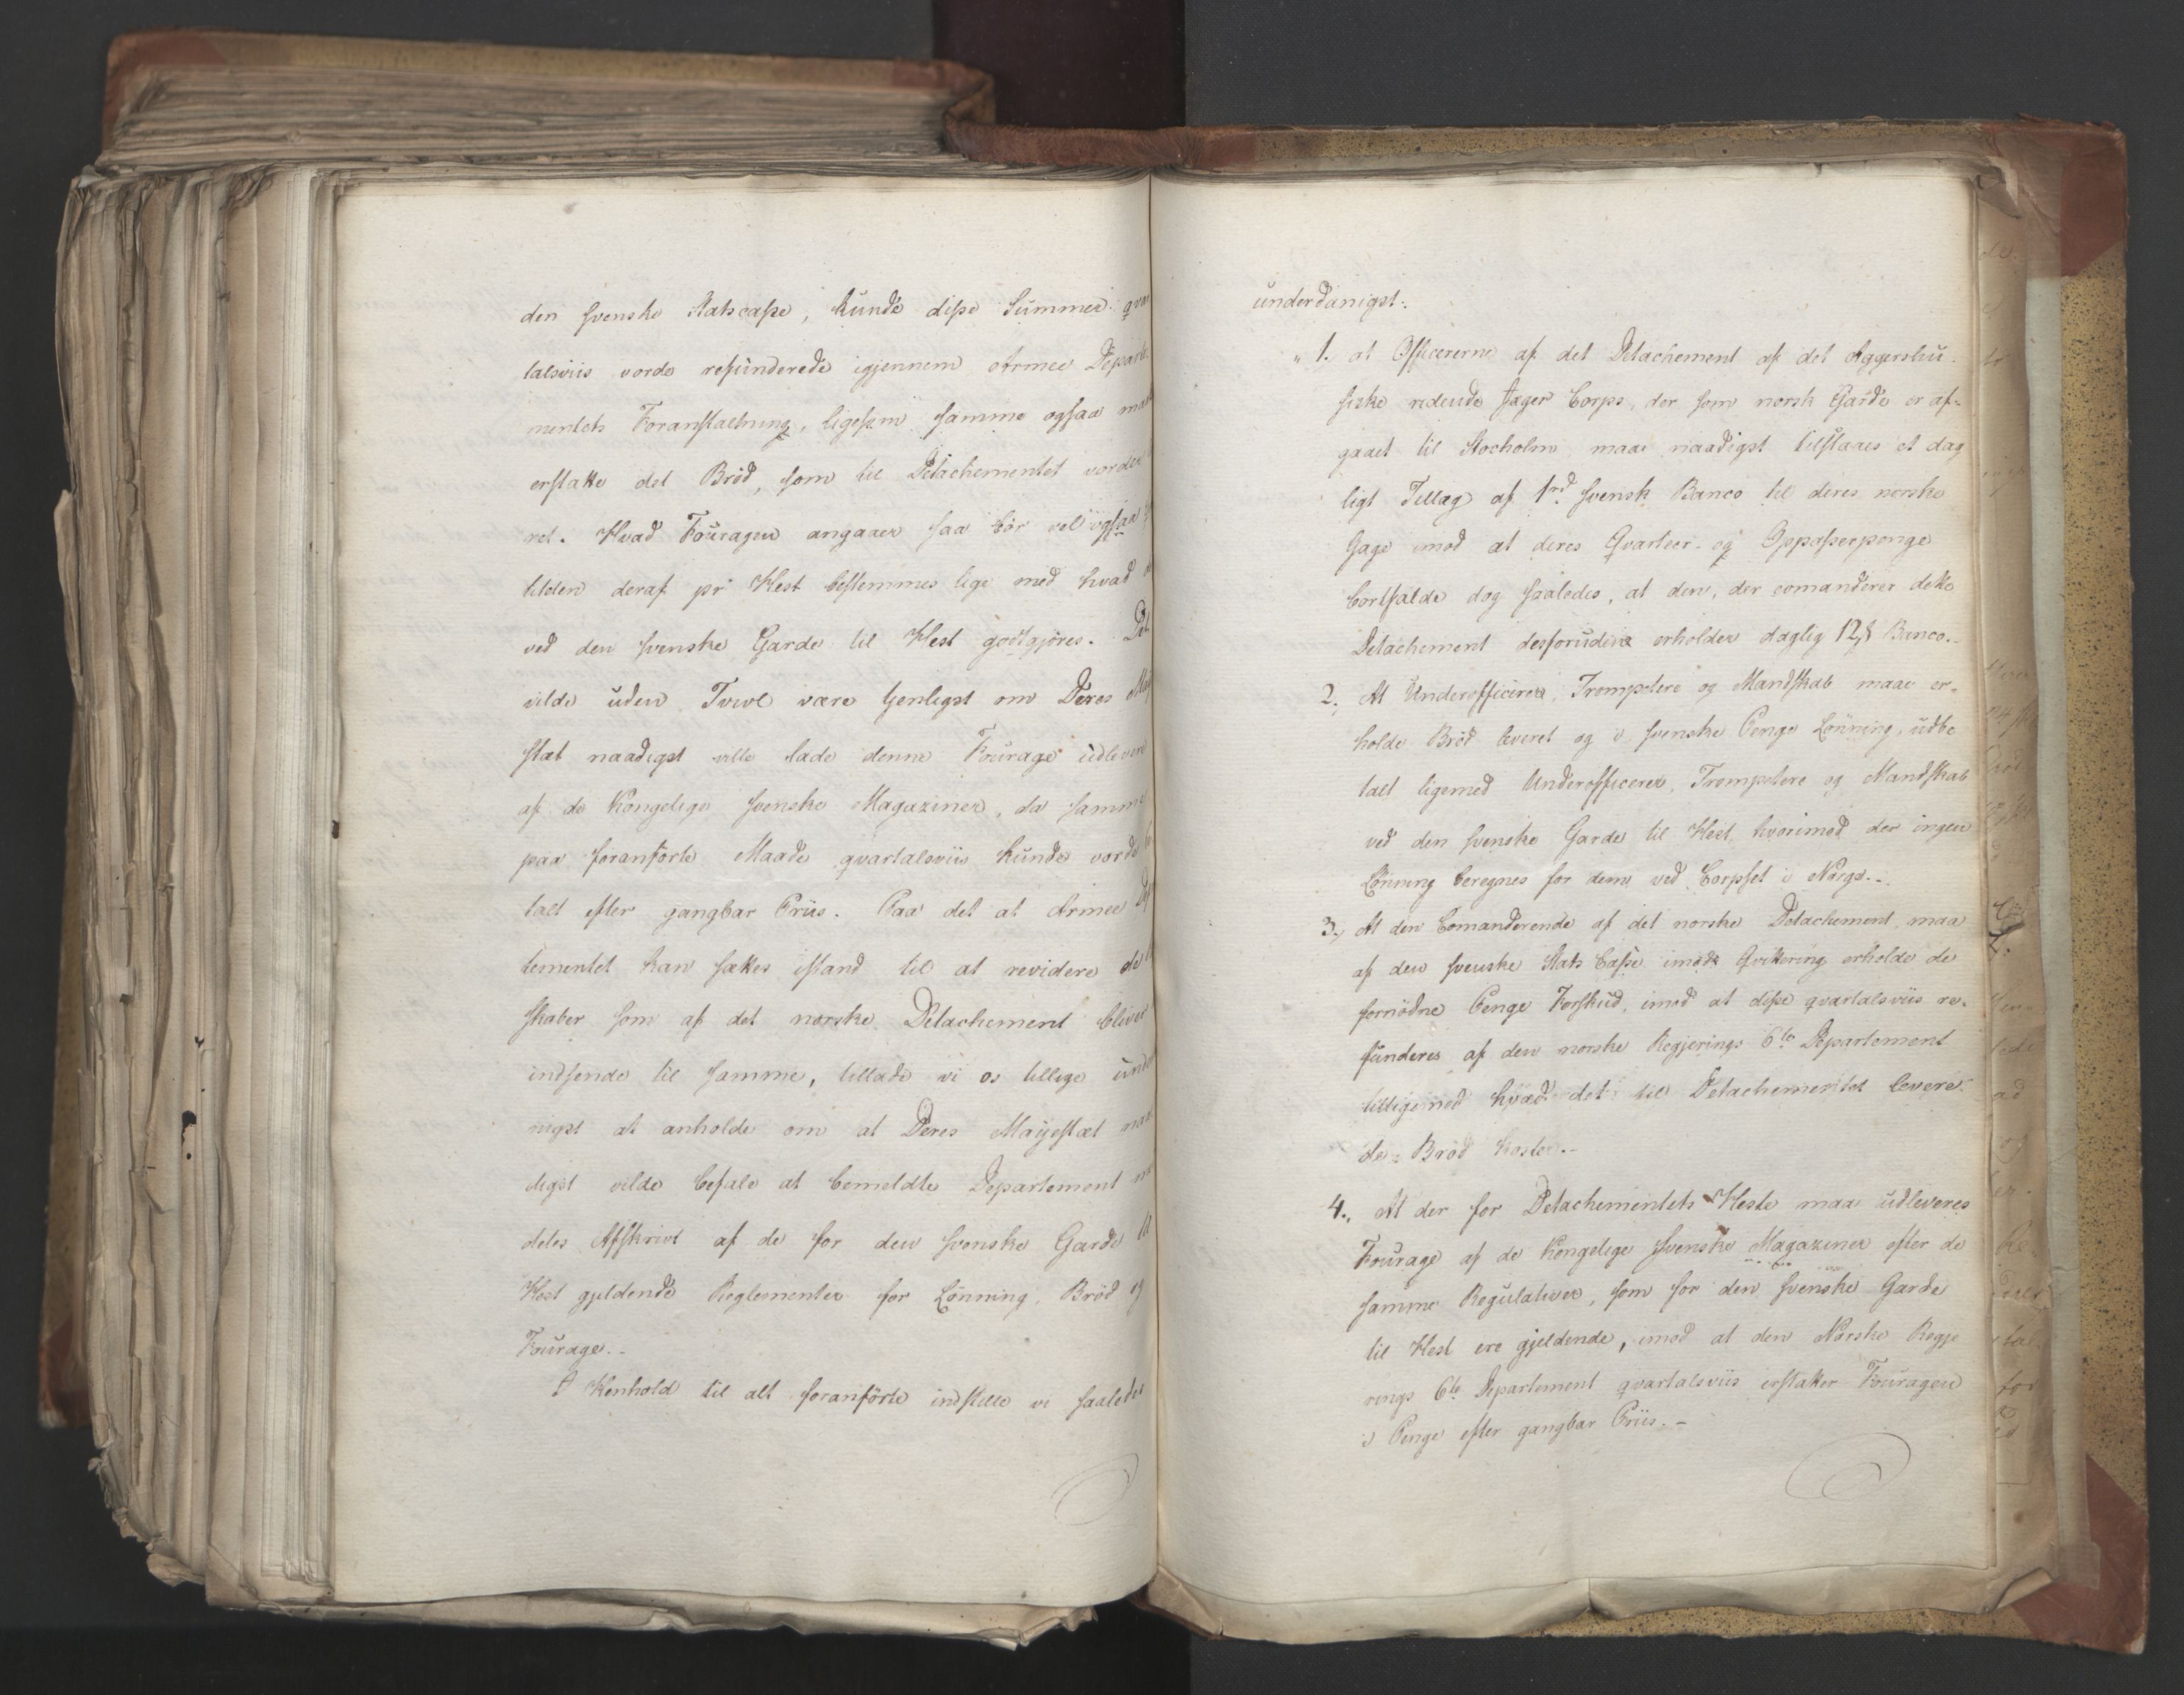 den svenske Statscasse, kunde disse Summer qvar
talsviis vorde refunderede igjennem Armee Departe
mentets Foranstaltning, ligesom samme ogsaa maat
erstatte det Bröd, som til Detachementet vorder
ret. Hvad Fouragen angaaer saa bör vel ogsaa
titelen deraf pr Hest bestemmes lige med hvad
ved den svenske Garde til Hest godtgjöres. Det
vilde uden Tvivl være tjenligst om Deres Maj
stæt naadigst ville lade denne Fourage udlevere
af de Kongelige svenske Magaziner, da samme
paa foranförte Maade qvartalsviis kunde vorde be
talt efter gangbar Priis. Paa det at Armee Dep
tementet kan sættes istand til at revidere de
skaber som af det norske Detachement bliver
indsende til samme, tillade vi os tillige under
nigst at anholde om at Deres Majestæt naa
digst vilde befale at bemeldte Departement
deles Afskrivt af de for den svenske Garde til
Hest gjeldende Reglementer for Lönning, Bröd og
Fourage.-
I Henhold til alt foranförte indstille vi saaledes
underdanigst:
" 1. at Officererne af det Detachement af det Aggershu-
siske ridende Jæger Corps, der som norsk Garde er af-
gaaet til Stocholm maae naadigst tilstaaes et dag
ligt Tillæg af 1rd. svensk Banco til deres norske
Gage imod at deres Qvarteer- og Oppasserpenge
bortfalde dog saaledes, at den, der comanderer dette
Detachement desforuden erholder daglig 12 ß Banco.-
2., At Underofficerer, Trompetere og Mandskab maae er-
holde Bröd leveret og i svenske Penge Lönning, udbe
talt ligemed Underofficerer, Trompetere og Mandskab
ved den svenske Garde til Hest, hvorimod der ingen
Lönning beregnes for dem ved Corpset i Norge.-
3., At den Comanderende af det norske Detachement, maa
af den svenske Stats Casse imod Qvittering erholde de
fornödne Penge Forskud, imod at disse qvartalsviis re-
funderes af den norske Regjerings 6te Departement
tilligemed hvad det til Detachementet levere-
de Bröd koster.-
4., At der for Detachementets Heste maa udleveres
Fourage af de Kongelige svenske Magaziner efter de
samme Regulativer, som for den svenske Garde
til Hest ere gjeldende, imod at den Norske Regje
rings 6te Departement qvartalsviis erstatter Fouragen
i Penge efter gangbar Priis.-